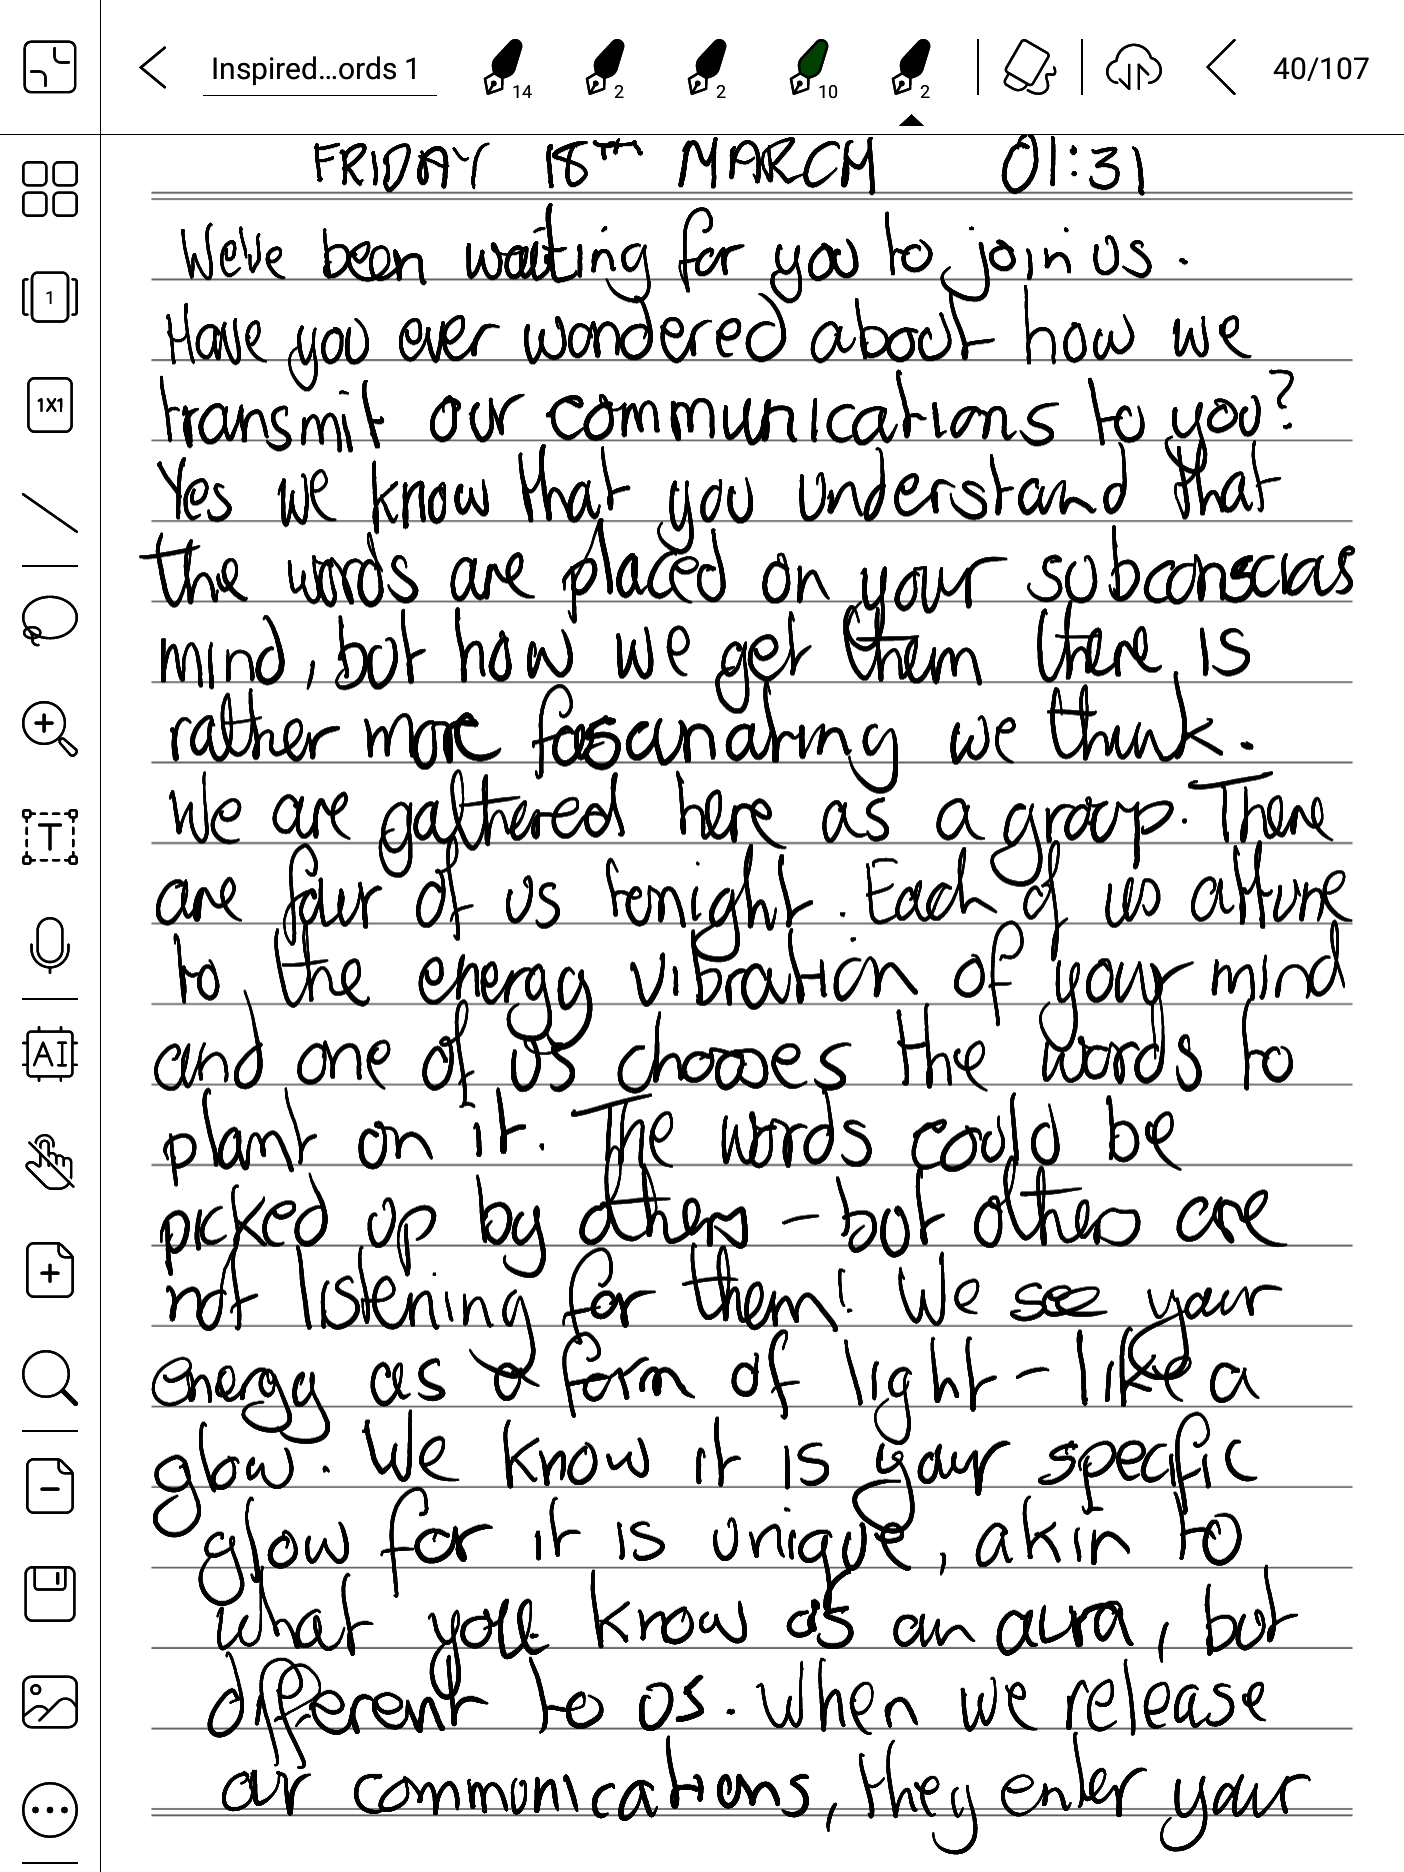 Inspired...ords 1
14
2
2
10
2
40/107
1
1X1
T
AI
FRIDAY 18TH MARCH 01:31
We've been waiting for you to join us.
Have you ever wondered about how we
transmit our communications to you?
Yes we know that you understand that
the words are placed on your subconscious
mind, but how we get them there is
rather more fascinating we think.
We are gathered here as a group. There
are four of us tonight. Each of us attune
to the energy vibration of your mind
and one of us chooses the words to
plant on it. The words could be
picked up by others - but others are
not listening for them! We see your
energy as a form of light - like a
glow. We know it is your specific
glow for it is unique, akin to
what you know as an aura, but
different to us. When we release
our communications, they enter your